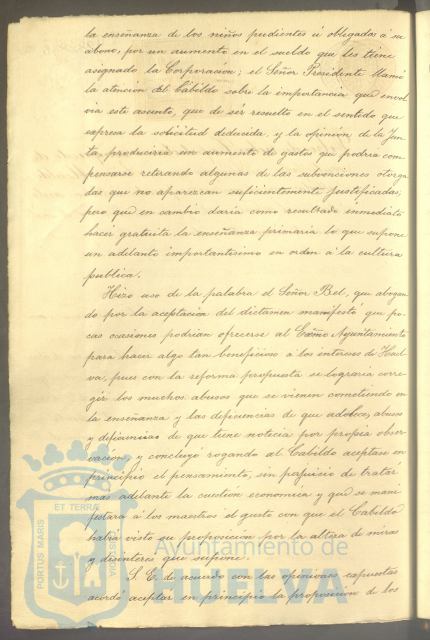 la enseñanza de los niños pudientes ú obligados á su
abono, por un aumento en el sueldo que les tiene
asignado la Corporación; el Señor Presidente llamó
la atención del Cabildo sobre la importancia que envol
via este asunto, que de sér resuelto en el sentido que
espresa la solicitud deducida, y la opinión de la Jun
ta, produciria un aumento de gastos que podria com
pensarse retirando algunas de las subvenciones otorga
das que no aparezcan suficientemente justificadas,
pero que en cambio daria como resultado inmediato
hacer gratuita la enseñanza primaria lo que supone
un adelanto importantisimo en orden á la cultura
publica.
Hizo uso de la palabra el Señor Bel, que abogan
do por la aceptacion del dictámen manifestó que po-
cas ocasiones podrian ofrecerse al Excmo Ayuntamiento
para hacer algo tan beneficioso á los intereses de Huel
va, pues con la reforma propuesta se lograria corre-
gir los muchos abusos que se vienen cometiendo en
la enseñanza y las deficiencias de que adolece, abusos
y deficiencias de que tiene noticia por propia obser
vacion, y concluyó rogando al Cabildo aceptase en
principio el pensamiento, sin perjuicio de tratar
mas adelante la cuestion economica y que se mani
festara á los maestros el gusto con que el Cabildo
habia visto su proposición por la alteza de miras
y desinteres que supone.
S. E. de acuerdo con las opiniones expuestas
acordó aceptar en principio la proposición de los
PORTUS MARIS
ET TERRÆ
Ayuntamiento de
HUELVA